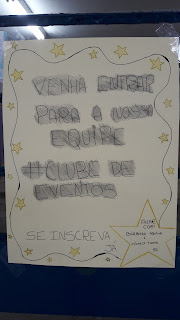 VENHA ENTRAR
PARA A NOSSA
EQUIPE
#CLUBE DE
EVENTOS
SE INSCREVA
JÁ
FALAR
COM: